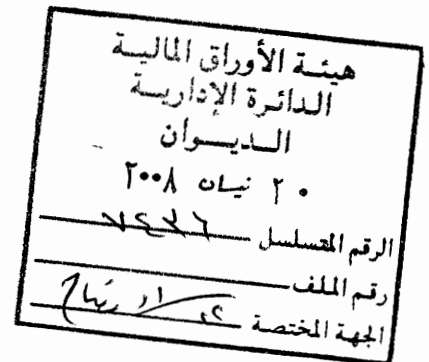 هيئة الأوراق المالية
الدائرة الإدارية
الديوان
٢٠ نيسان ٢٠٠٨
الرقم المتسلسل
رقم الملف
الجهة المختصة